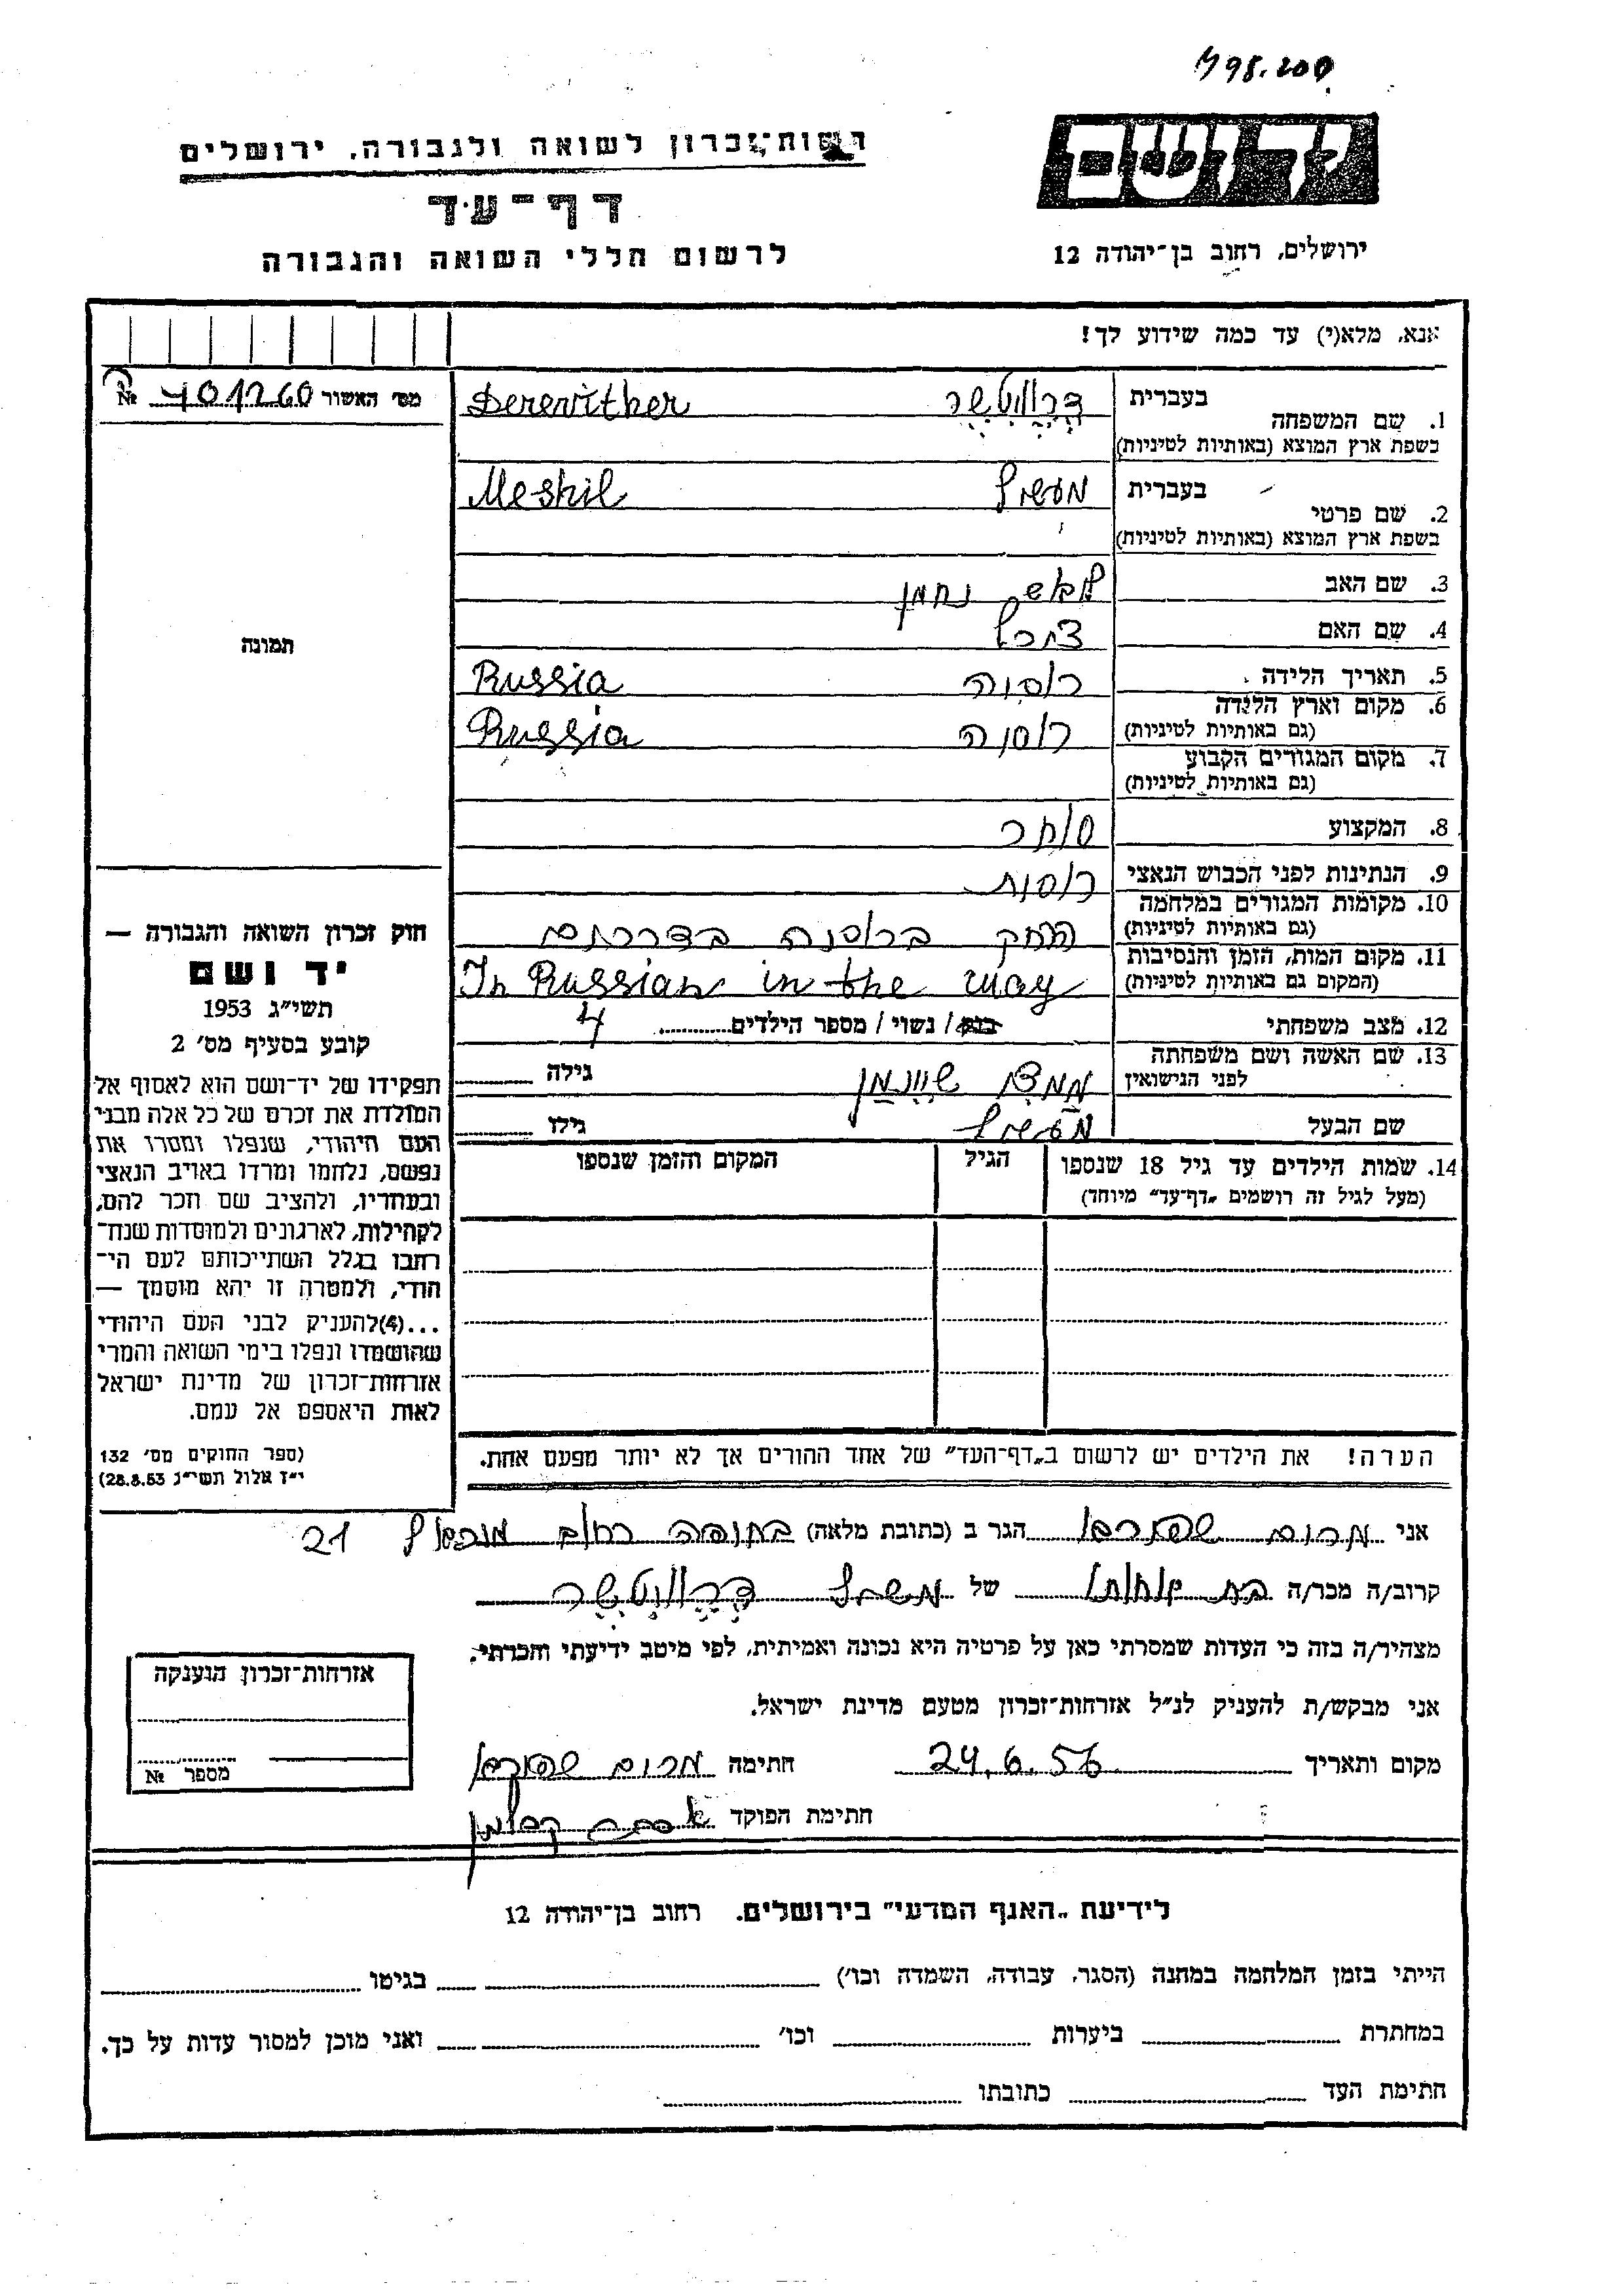 498.200
רשות־זכרון לשואה ולגבורה, ירושלים
יד ושם
דף־עד
לרשום חללי השואה והגבורה
ירושלים, רחוב בן־יהודה 12
אנא, מלא(י) עד כמה שידוע לך!
מס׳ האשור 401260 №
1. שם המשפחה בעברית דרוויטשר Derevither
בשפת ארץ המוצא (באותיות לטיניות)
2. שם פרטי בעברית מעשיל Meshil
בשפת ארץ המוצא (באותיות לטיניות)
3. שם האב נחמן
4. שם האם
5. תאריך הלידה רוסיה Russia
6. מקום וארץ הלידה
(גם באותיות לטיניות) רוסיה Russia
7. מקום המגורים הקבוע
(גם באותיות לטיניות)
8. המקצוע סוחר
9. הנתינות לפני הכבוש הנאצי רוסית
10. מקומות המגורים במלחמה
(גם באותיות לטיניות) ברוסיה בדרכים
11. מקום המות, הזמן והנסיבות
(המקום גם באותיות לטיניות) In Russian in the way
12. מצב משפחתי רווק / נשוי / מספר הילדים 4
13. שם האשה ושם משפחתה
לפני הנישואין גילה
שם הבעל מעשיל גילו
14. שמות הילדים עד גיל 18 שנספו הגיל המקום והזמן שנספו
(מעל לגיל זה רושמים „דף־עד״ מיוחד)
הערה! את הילדים יש לרשום ב„דף־העד״ של אחד ההורים אך לא יותר מפעם אחת.
תמונה
חוק זכרון השואה והגבורה —
יד ושם
תשי״ג 1953
קובע בסעיף מס׳ 2
תפקידו של יד־ושם הוא לאסוף אל
המולדת את זכרם של כל אלה מבני
העם היהודי, שנפלו ומסרו את
נפשם, נלחמו ומרדו באויב הנאצי
ובעוזריו, ולהציב שם וזכר להם,
לקהילות, לארגונים ולמוסדות שנח־
רבו בגלל השתייכותם לעם הי־
הודי, ולמטרה זו יהא מוסמך —
...(4)להעניק לבני העם היהודי
שהושמדו ונפלו בימי השואה והמרי
אזרחות־זכרון של מדינת ישראל
לאות היאספם אל עמם.
(ספר החוקים מס׳ 132
י״ז אלול תשי״ג 28.8.53)
אני מרים הגר ב (כתובת מלאה) רחוב 21
קרוב/ה מכר/ה בת של מעשיל דרוויטשר
מצהיר/ה בזה כי העדות שמסרתי כאן על פרטיה היא נכונה ואמיתית, לפי מיטב ידיעתי והכרתי.
אני מבקש/ת להעניק לנ״ל אזרחות־זכרון מטעם מדינת ישראל.
מקום ותאריך 24.6.56 חתימה מרים
חתימת הפוקד
אזרחות־זכרון הוענקה
מספר №
לידיעת „האגף המדעי״ בירושלים, רחוב בן־יהודה 12
הייתי בזמן המלחמה במחנה (הסגר, עבודה, השמדה וכו׳) בגיטו
במחתרת ביערות וכו׳ ואני מוכן למסור עדות על כך.
חתימת העד כתובתו